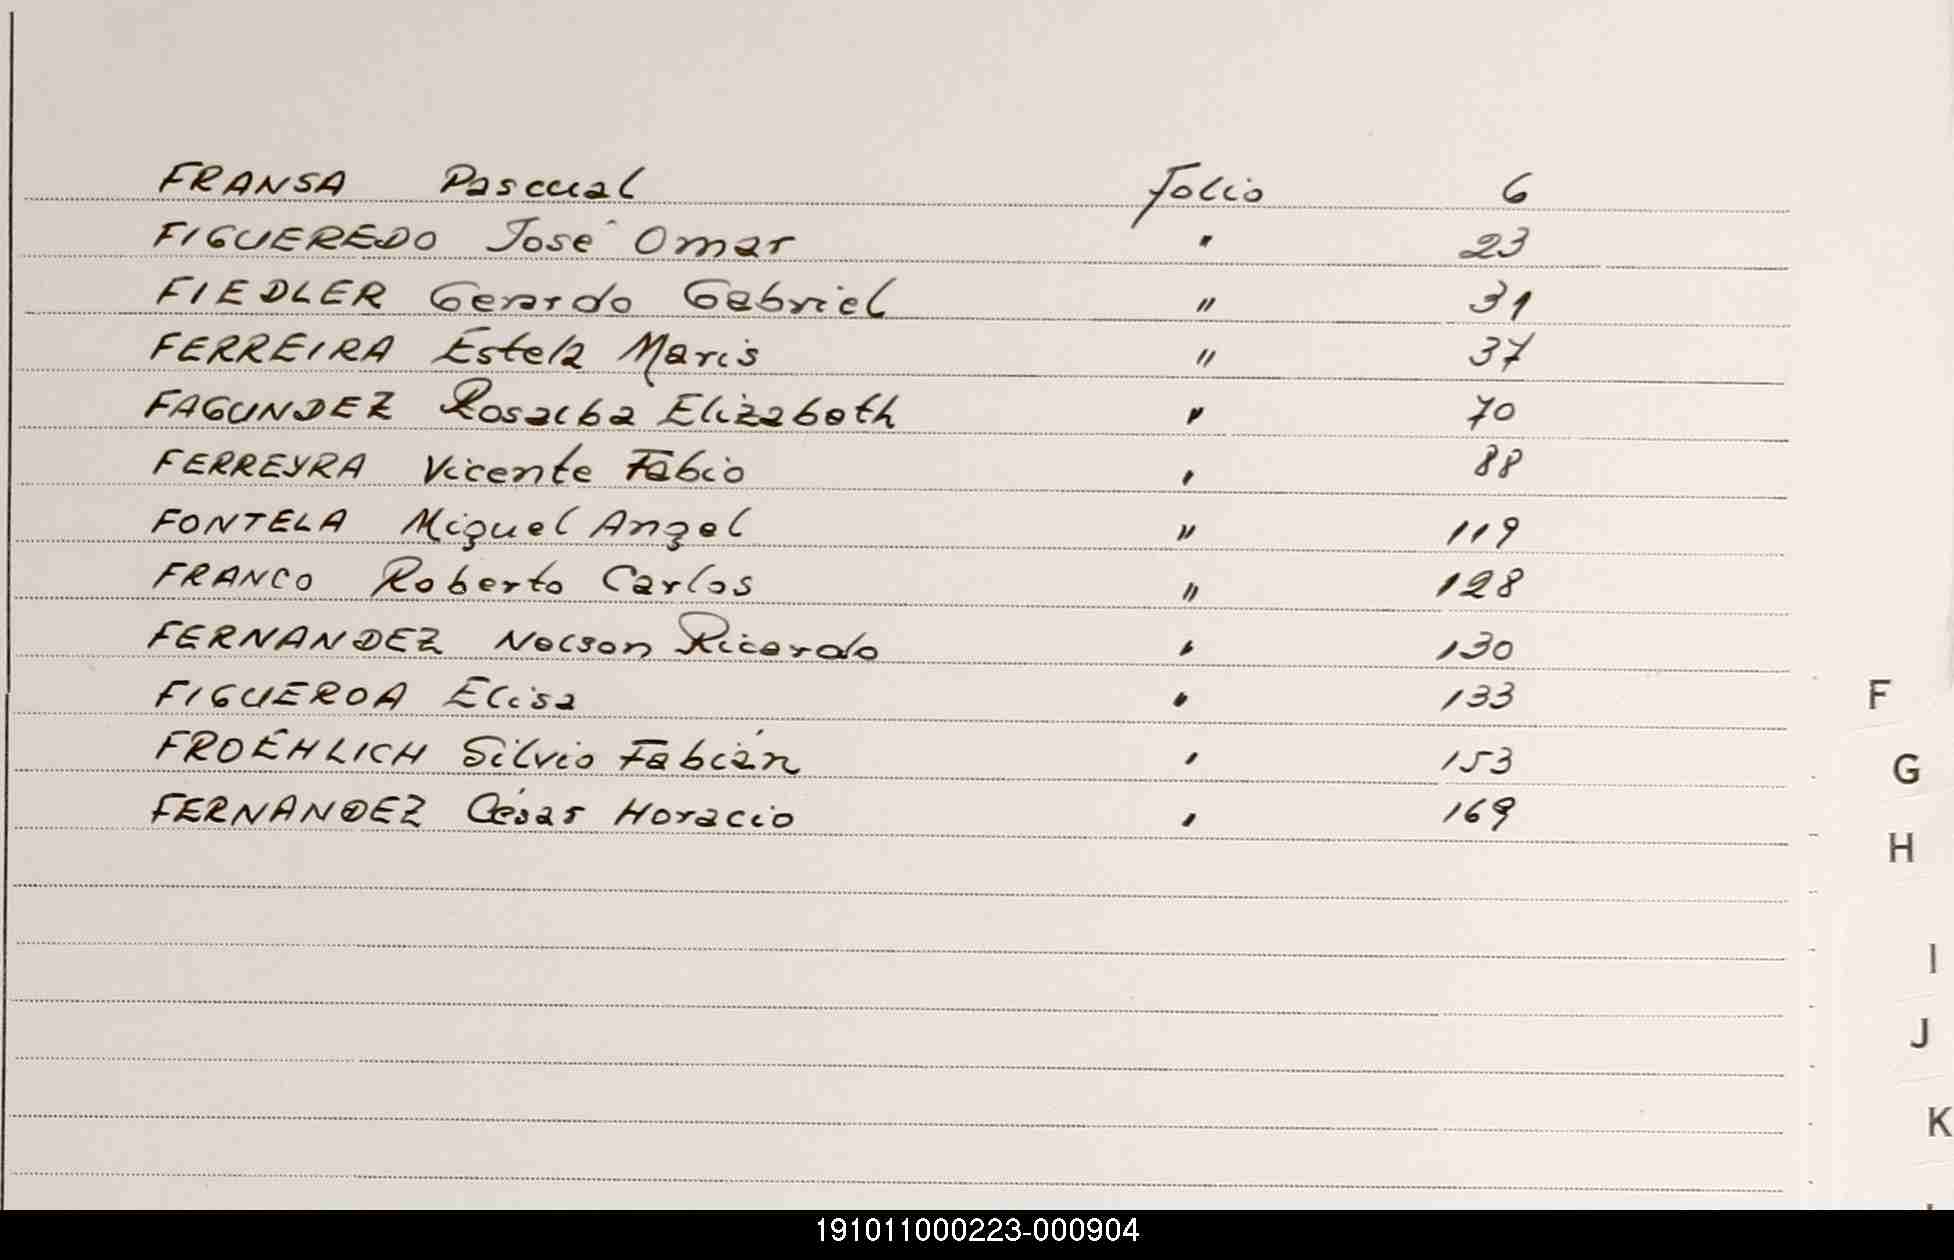 FRANSA Pascual Folio 6
FIGUEREDO José Omar " 23
FIEDLER Gerardo Gabriel " 31
FERREIRA Estela Maris " 37
FAGUNDEZ Rosalba Elizabeth " 70
FERREYRA Vicente Fabio " 88
FONTELA Miguel Angel " 119
FRANCO Roberto Carlos " 128
FERNANDEZ Nelson Ricardo " 130
FIGUEROA Elisa " 133
F
FROEHLICH Silvio Fabián " 153
G
FERNANDEZ César Horacio " 169
H
I
J
K
191011000223-000904